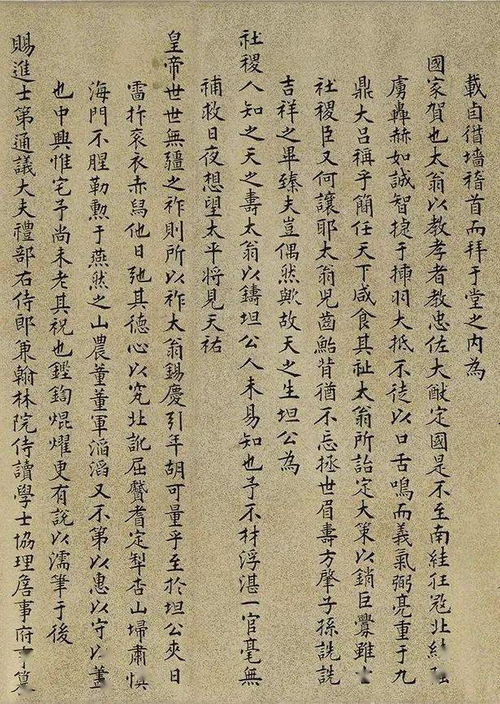 載卣偕墻稽首而拜于堂之內為
國家賀也太翁以教孝者教忠佐大猷定國是不至南絓任寇北
虜轟赫如誠智掟于揷羽大抵不徒以口舌鳴而義氣弼亮重于九
鼎大呂稱乎簡任天下咸食其祉太翁所詒定大策以銷巨釁雖
社稷臣又何讓耶太翁兒齒鮐背猶不忘拯世眉壽方肇子孫詵詵
吉祥之畢臻夫豈偶然歟故天之生坦公為
社稷人知之天之壽太翁以鑄坦公人未易知也予不材浮湛一官毫無
補救日夜想望太平將見天祐
皇帝世世無疆之祚則所以祚太翁錫慶引年胡可量乎至於坦公夾日
雷柞袞衣赤舄他日弛其德心以究北訛屈贇耆定犁杏山埽肅慎
海門不腥勒勲于燕然之山農董董軍滔滔又不第以惠以守以
也中興惟宅予尚未老其祝也鏗鍧焜燿更有說以濡筆于後
賜進士第通議大夫禮部右侍郎兼翰林院侍讀學士協理詹事府事